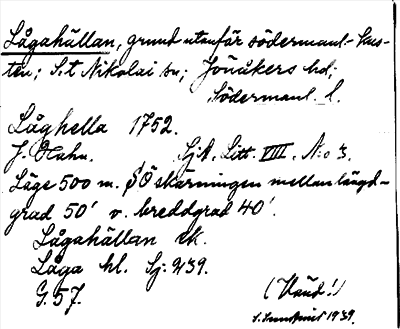 Lågahällan, grund utanför södermanl.- kus-
ten; S:t Nikolai sn; Jönåkers hd;
Södermanl. l.
Låghella 1752.
J. Hahn. SjA, Litt. VIII. N:o 3.
Läge 500 m. SÖ skärningen mellan längd-
grad 50' o. breddgrad 40'.
Lågahällan ek.
Låga hl. Sj: 939.
G. 57. (Vänd!)
1939.